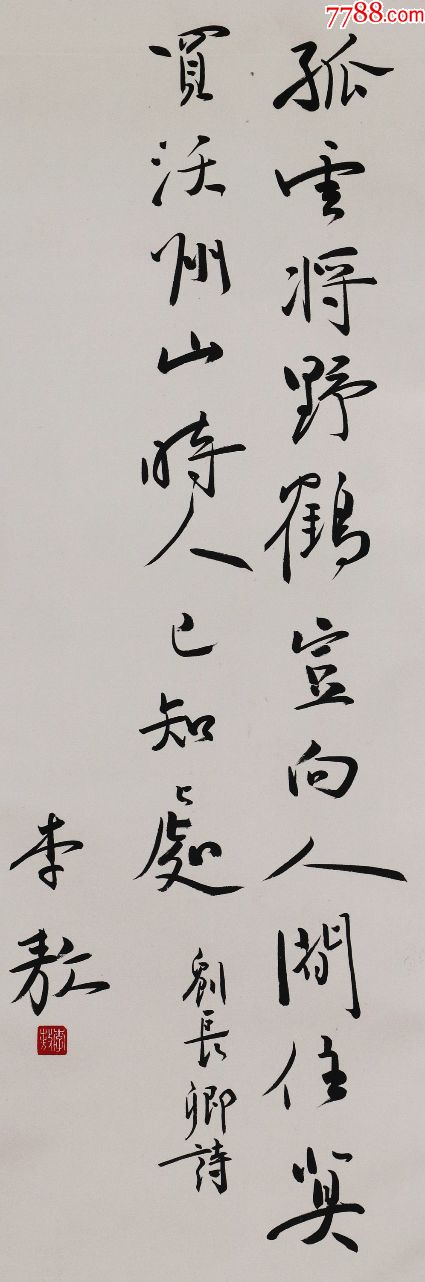 7788.com
孤雲将野鶴豈向人間住莫
買沃州山時人已知處
劉長卿詩
李敖
李敖